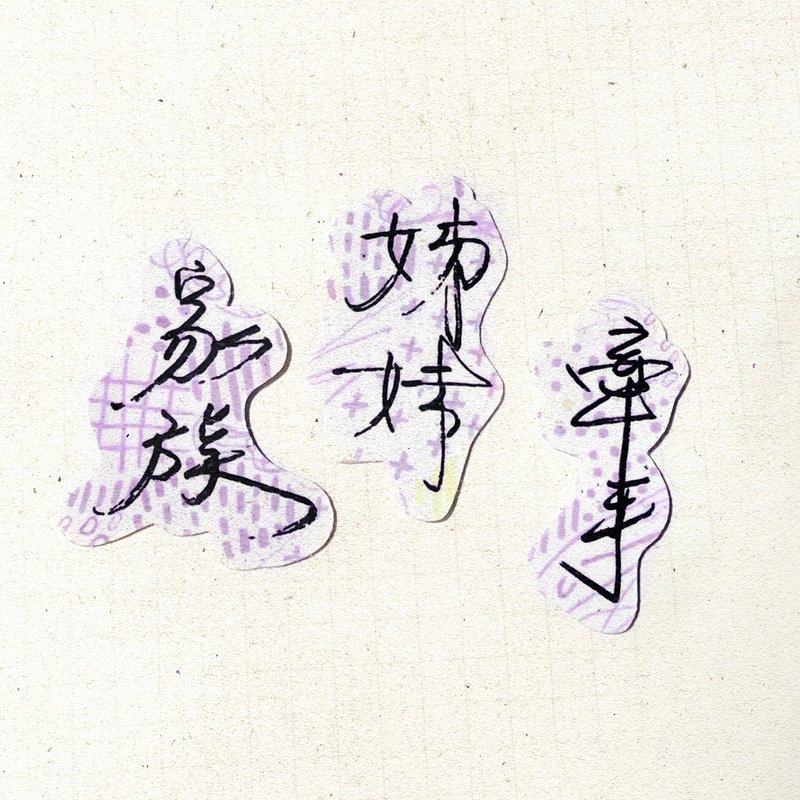 家族
姊妹
牽手